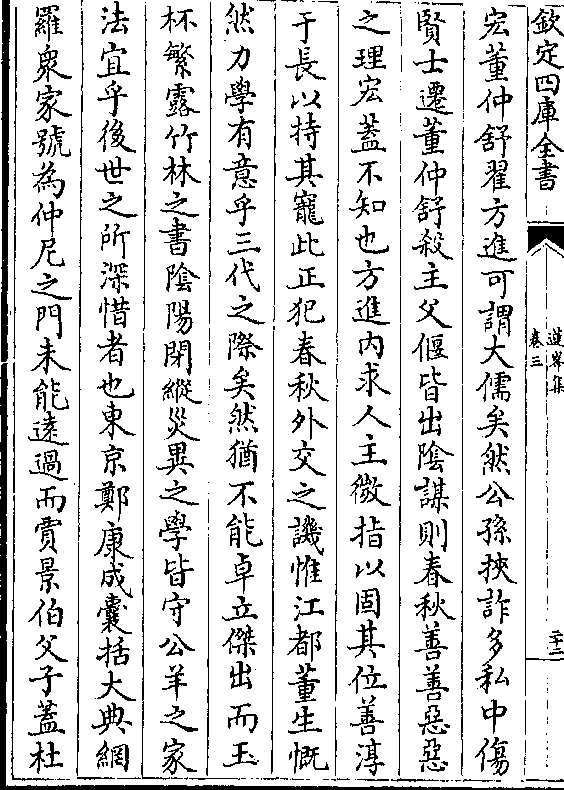 欽定四庫全書
蓮峯集
卷三
二十二
宏董仲舒翟方進可謂大儒矣然公孫挾詐多私中傷
賢士遷董仲舒殺主父偃皆出陰謀則春秋善善惡惡
之理宏蓋不知也方進內求人主微指以固其位善淳
于長以持其寵此正犯春秋外交之譏惟江都董生慨
然力學有意乎三代之際矣然猶不能卓立傑出而玉
杯繁露竹林之書陰陽閉縱災異之學皆守公羊之家
法宜乎後世之所深惜者也東京鄭康成囊括大典網
羅衆家號為仲尼之門未能遠過而賈景伯父子蓋杜